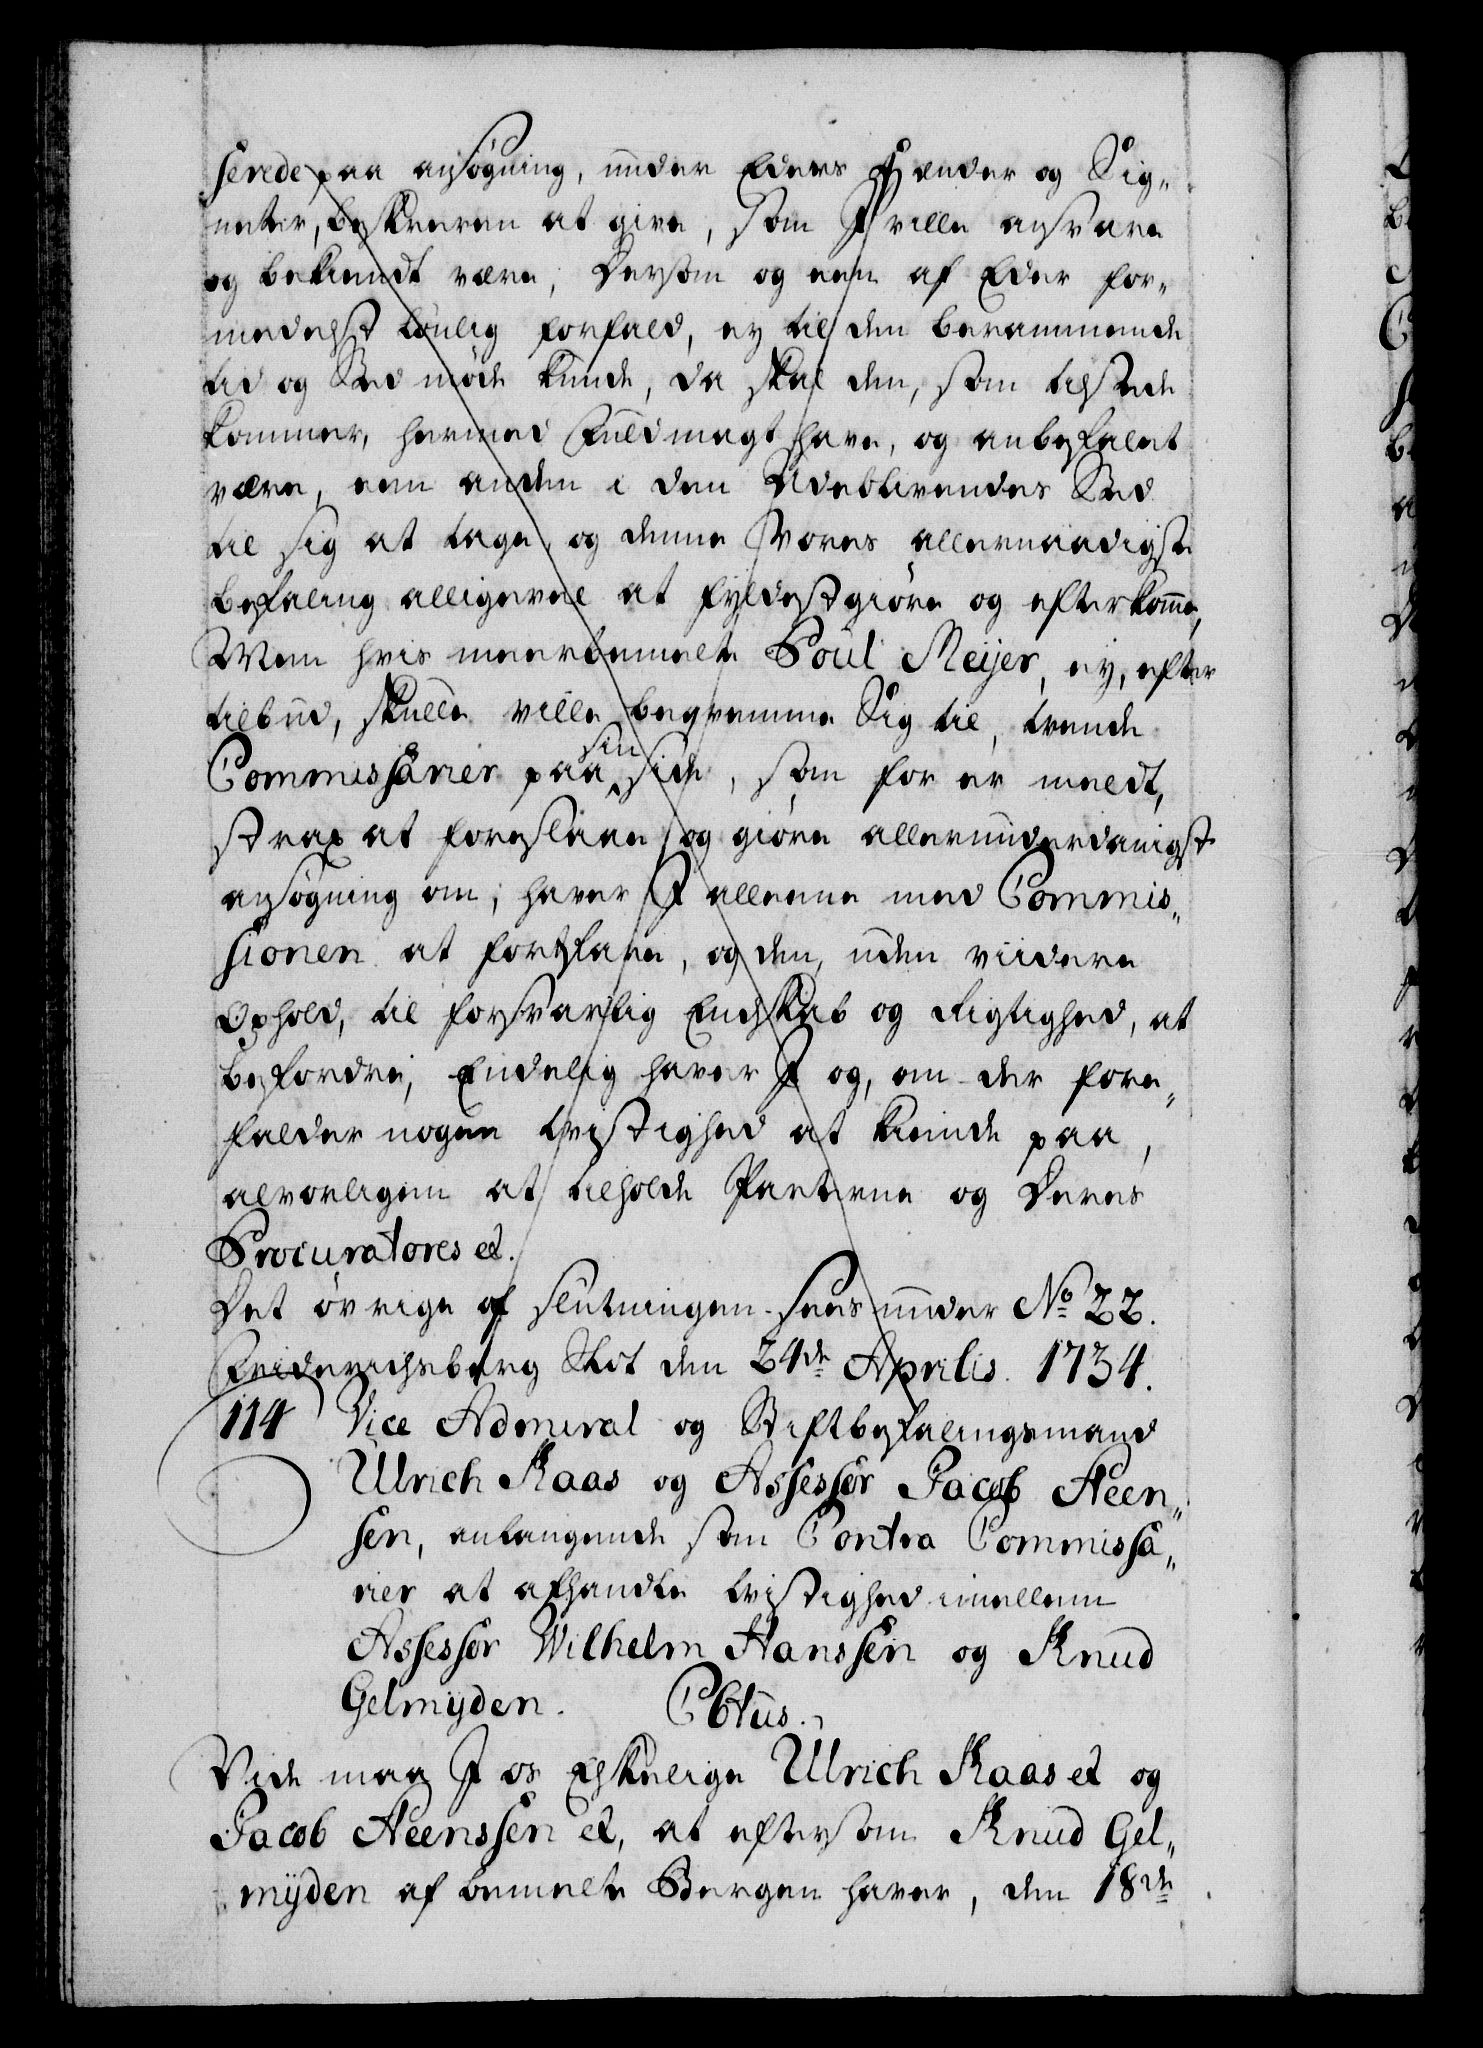 serede paa ansøgning, under Eders Hænder og Sig„
neter, beskreven at give, som I ville ansvare
og bekiendt være; Dersom og een af Eder for„
medelst lovlig forfald, ey til den berammende
tid og Sted møde kunde, da skal den, som tilstede
kommer, hermed Fuldmagt have, og anbefalet
være, een anden i den Udeblivendes Sted
til sig at tage, og denne Vores allernaadigste
befaling alligevel at fyldestgiøre og efterkomme,
Men hvis meerbemelte Poul Meijer, ey, efter
tilbud, skulle ville beqvemme Sig til, tvende
Commissarier paa sin side, som for er meldt,
strax at foreslaae og giøre allerunderdanigst
ansøgning om; haver I alleene med Commis„
sionen at fortfare, og den, uden viidere
Ophold, til forsvarlig Endskab og Rigtighed, at
befordre; Endelig haver I og, om der fore„
falder nogen tvistighed at kiende paa,
alvorligen at tilholde Parterne og Deres
Procuratores etc.
Det øvrige af slutningen sees under No 22.
Friderichsberg Slot den 24de Aprilis 1734.
114 Vice Admiral og Stiftbefalingsmand
Ulrich Kaas og Assessor Jacob Heen„
sen, anlangende som Contra Commissa„
rier at afhandle tvistighed imellem
Assessor Wilhelm Hanssen og Knud
Gelmyden. C6tus.
Vide maa I os Elskelige Ulrich Kaas etc og
Jacob Heenssen etc, at eftersom Knud Gel„
myden af bemelte Bergen haver, den 18de